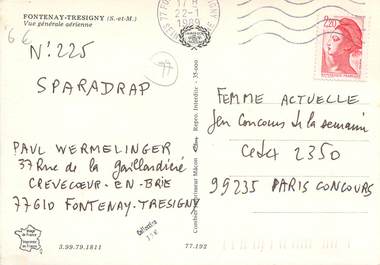 FONTENAY-TRESIGNY (S.-et-M.)
Vue générale aérienne
6 €
N° 225
SPARADRAP
PAUL WERMELINGER
37 Rue de la Gaillardière
CREVECOEUR-EN-BRIE
77610 FONTENAY-TRESIGNY
3.99.79.1811
77.192
Combier Imprimeur Mâcon
Repro. Interdite - 35-000
22-1
1989
2,20
FEMME ACTUELLE
Jeu Concours de la semaine
Cedex 2350
99235 PARIS CONCOURS